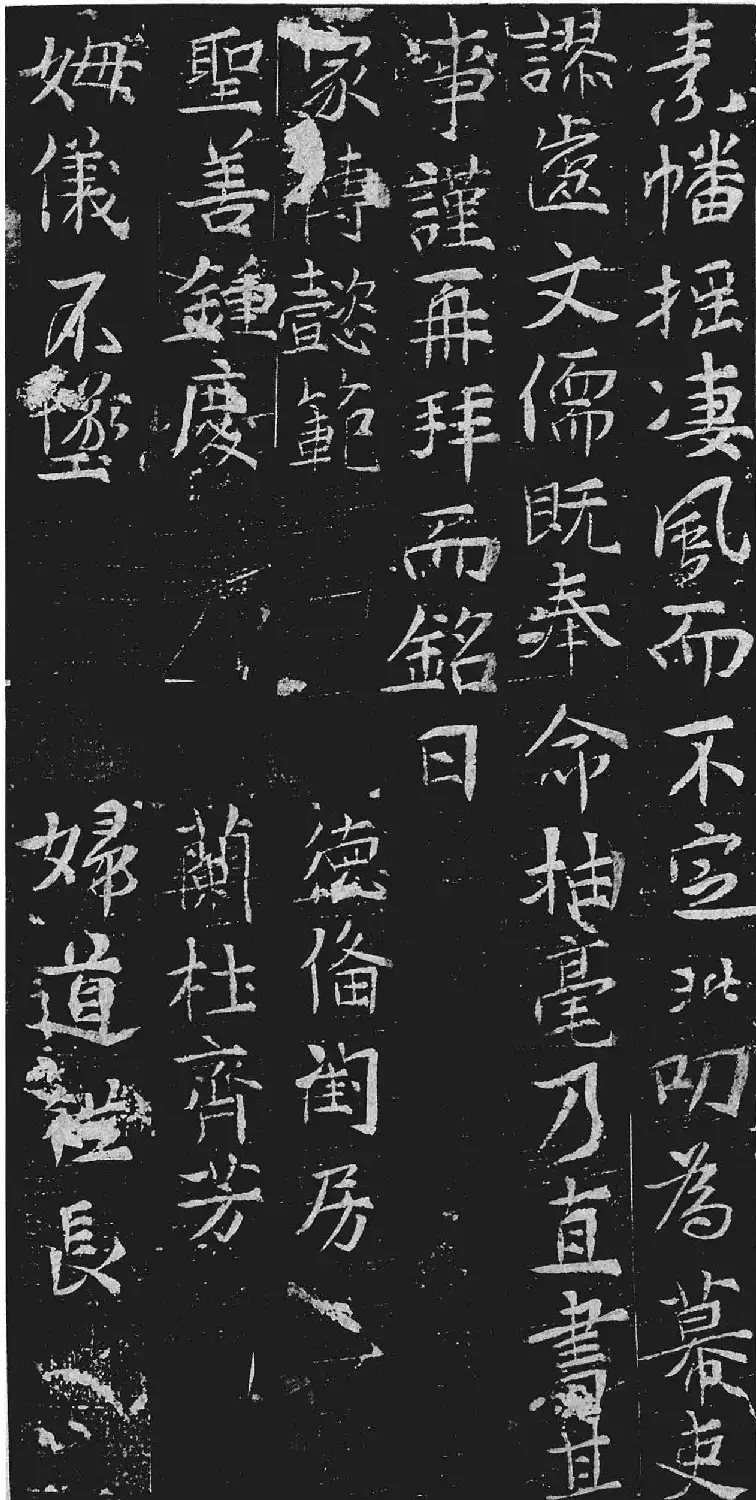 素幡摇凄風而不定玭叨為幕吏
謬齒文儒既奉命抽毫乃直書其
事謹再拜而銘曰
家傳懿範 德俻閨房
聖善鍾慶 蘭杜齊芳
姆儀不墜 婦道長